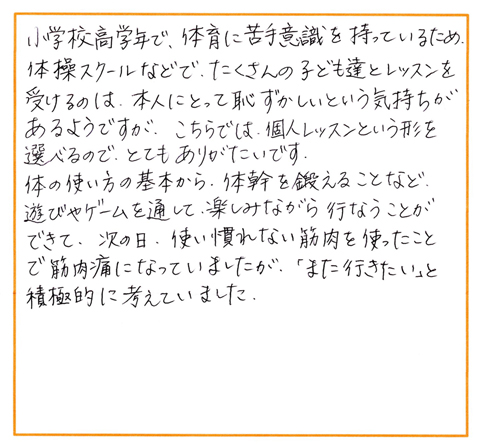 小学校高学年で、体育に苦手意識を持っているため、
体操スクールなどで、たくさんの子ども達とレッスンを
受けるのは、本人にとって恥ずかしいという気持ちが
あるようですが、こちらでは、個人レッスンという形を
選べるので、とてもありがたいです。
体の使い方の基本から、体幹を鍛えることなど、
遊びやゲームを通して、楽しみながら行なうことが
できて、次の日、使い慣れない筋肉を使ったこと
で筋肉痛になっていましたが、「また行きたい」と
積極的に考えていました。